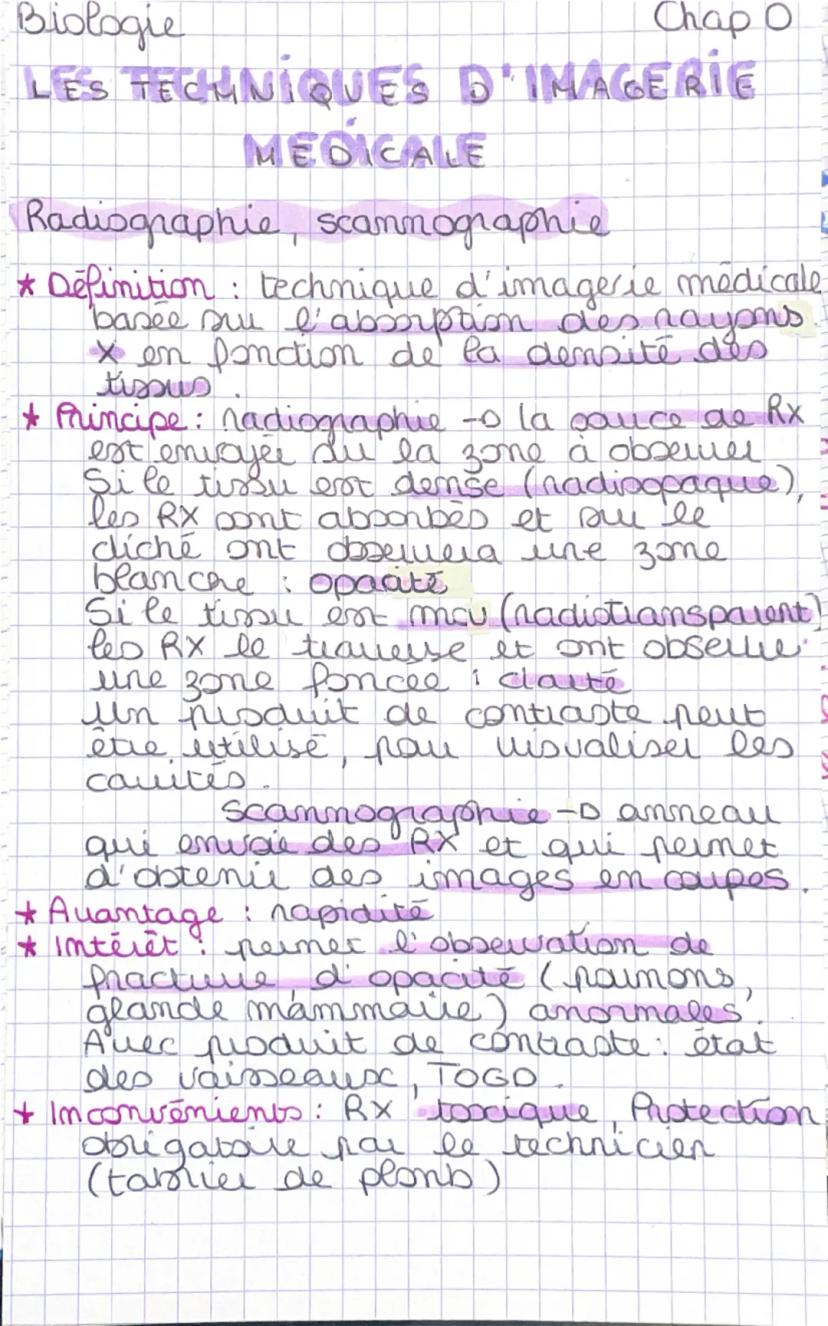 Biologie Chap 0
LES TECHNIQUES D'IMAGERIE
MÉDICALE
Radiographie, scannographie
* Définition : technique d'imagerie médicale
basée sur l'absorption des rayons
X en fonction de la densité des
tissus.
* Principe : radiographie → la source de RX
est envoyée sur la zone à observer
Si le tissu est dense (radioopaque),
les RX sont absorbés et sur le
cliché ont observera une zone
blanche : opacité
Si le tissu est mou (radiotransparent)
les RX le traverse et ont observe
une zone foncée : clarté
Un produit de contraste peut
être utilisé, pour visualiser les
cavités.
scannographie → anneau
qui envoie des RX et qui permet
d'obtenir des images en coupes.
* Avantage : rapidité
* Intérêt : permet l'observation de
fracture d'opacité (poumons,
glande mammaire) anormales.
Avec produit de contraste : état
des vaisseaux, TOGD.
* Inconvénients : RX toxique, Protection
obligatoire par le technicien
(tablier de plomb)